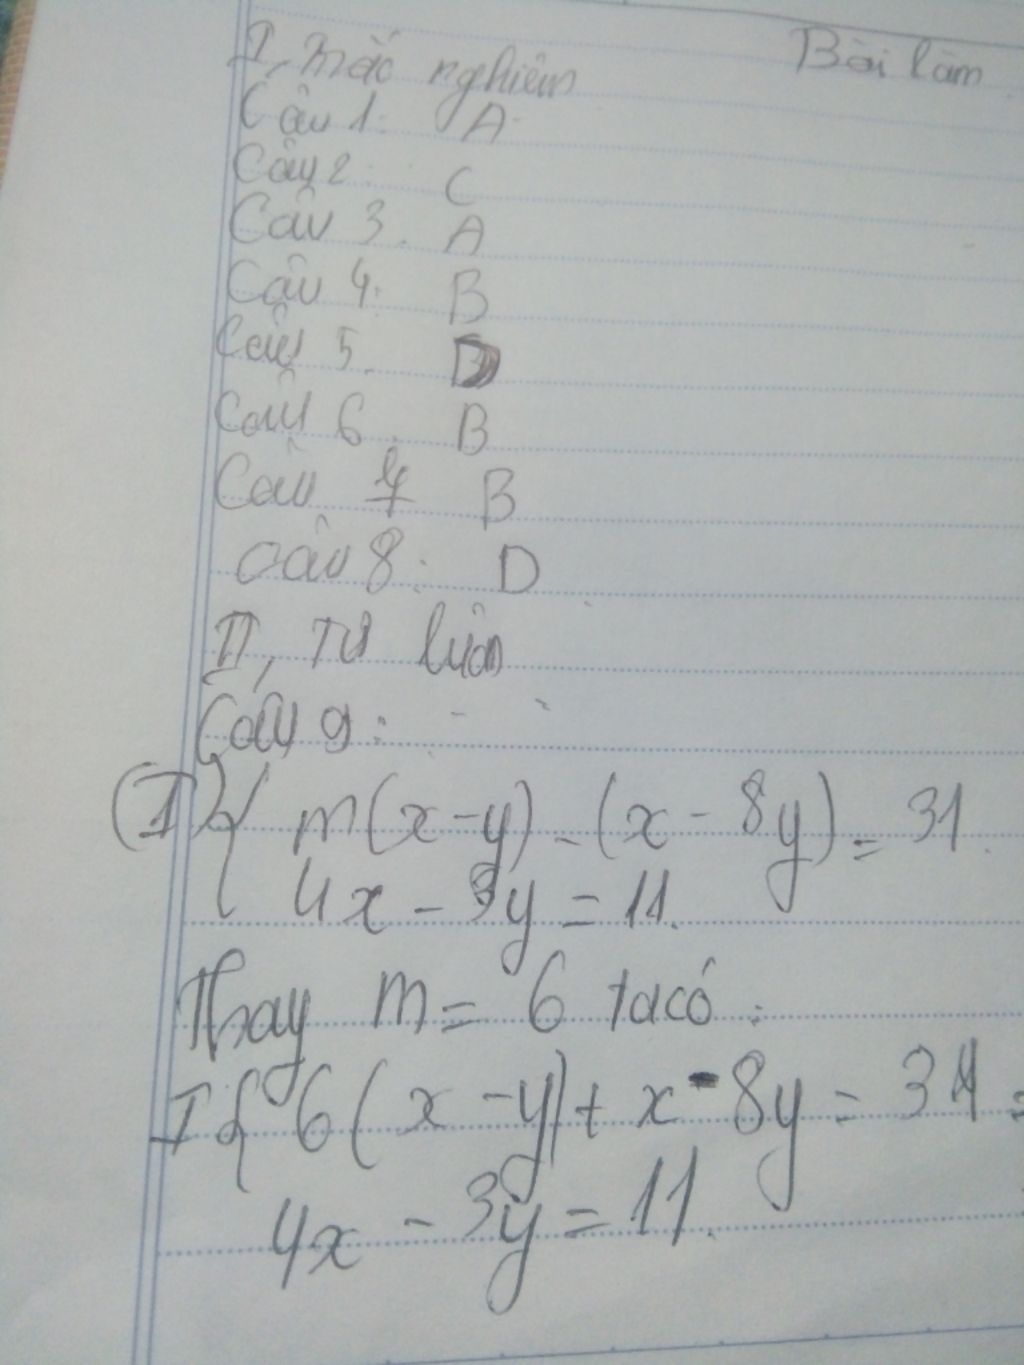 Bài làm
I, Trắc nghiệm
Câu 1: A
Câu 2: C
Câu 3. A
Câu 4: B
Câu 5. D
Câu 6. B
Câu 7 B
Câu 8: D
II, Tự luận
Câu 9:
(I) { m(x-y) - (x - 8y) = 31.
4x - 3y = 11.
Thay m = 6 ta có:
I { 6(x - y) + x - 8y = 31 =
4x - 3y = 11.